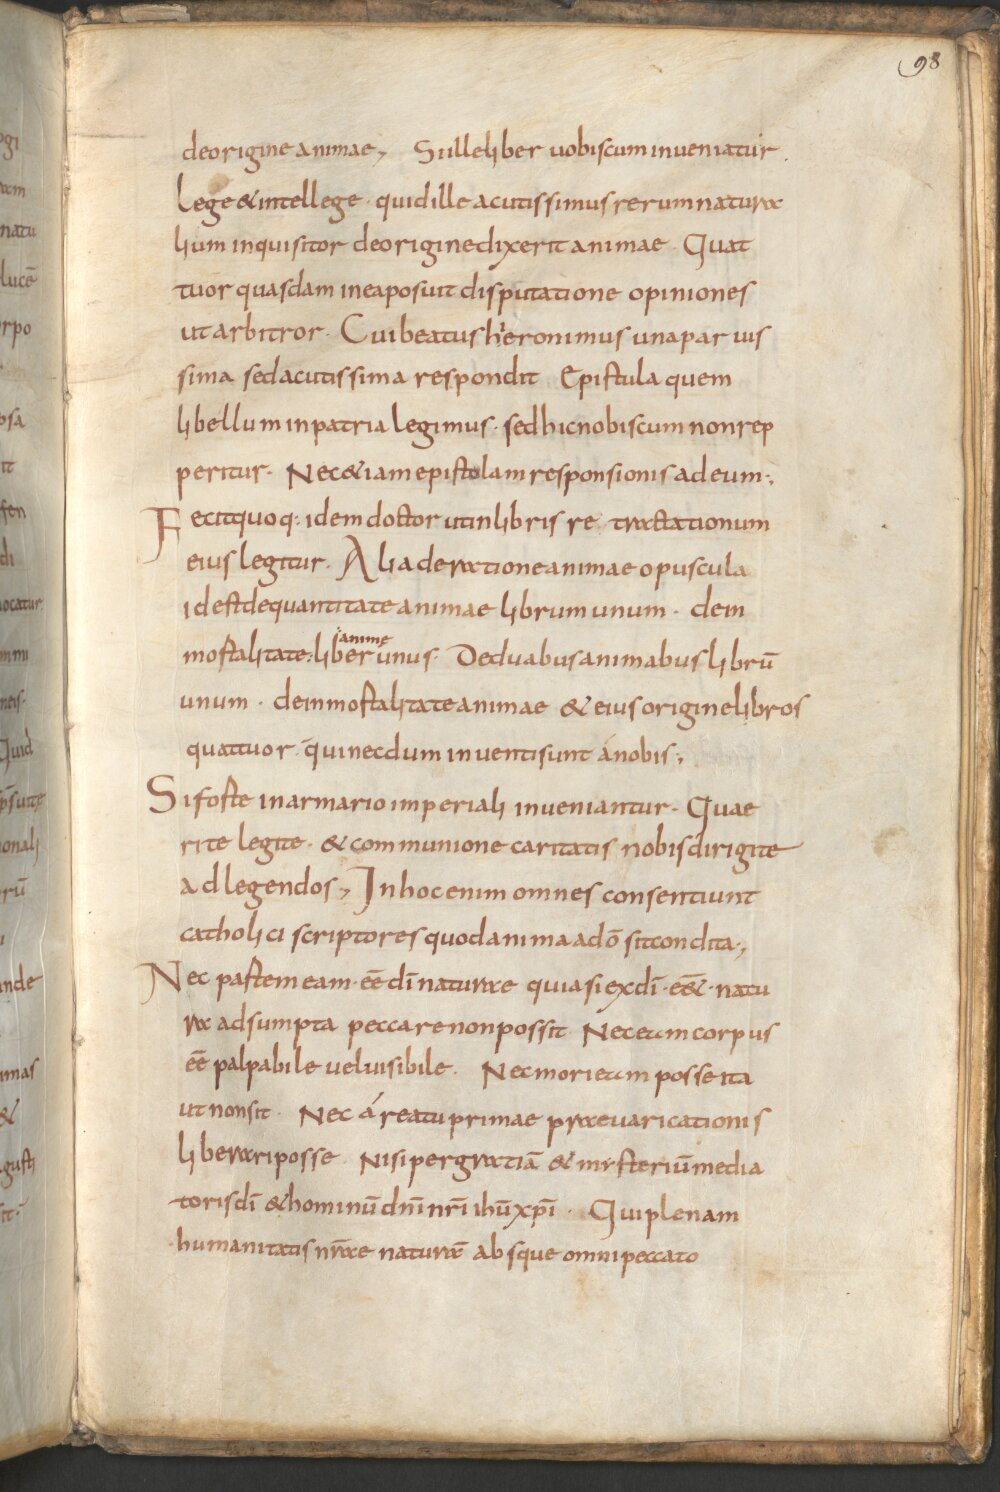 98
de origine animae, Si ille liber uobiscum inueniatur.
Lege & intellege · quid ille acutissimus rerum natura
lium inquisitor de origine dixerit animae · Quat
tuor quasdam in ea posuit disputatione opiniones
ut arbitror · Cui beatus hieronimus una paruis
sima sed acutissima respondit Epistula quem
libellum in patria legimus · sed hic nobiscum non rep
peritur · Nec &iam epistolam responsionis ad eum ·;
Fecit quoq: idem doctor ut in libris re tractationum
eius legitur · Alia de ratione animae opuscula
id est de quantitate animae librum unum · de in
mortalitate: animę liber unus · De duabus animabus librū
unum · de inmortalitate animae & eius origine libros
quattuor · qui necdum inuenti sunt á nobis ·;
Si forte in armario imperiali inueniantur · Quae
rite legite · & communione caritatis nobis dirigite
ad legendos, In hoc enim omnes consentiunt
catholici scriptores quod anima a dō sit condita ·,
Nec partem eam · eē dī naturae quia si ex dī · eē& · natu
ra adsumpta peccare non possit · Nec etiam corpus
eē palpabile uel uisibile · Nec mori etiam posse ita
ut non sit · Nec á reatu primae praeuaricationis
liberari posse · Nisi per gratiā & mysteriū media
toris dī & hominū dnī nrī ihū xpī · Qui plenam
humanitatis nrae naturā absque omni peccato